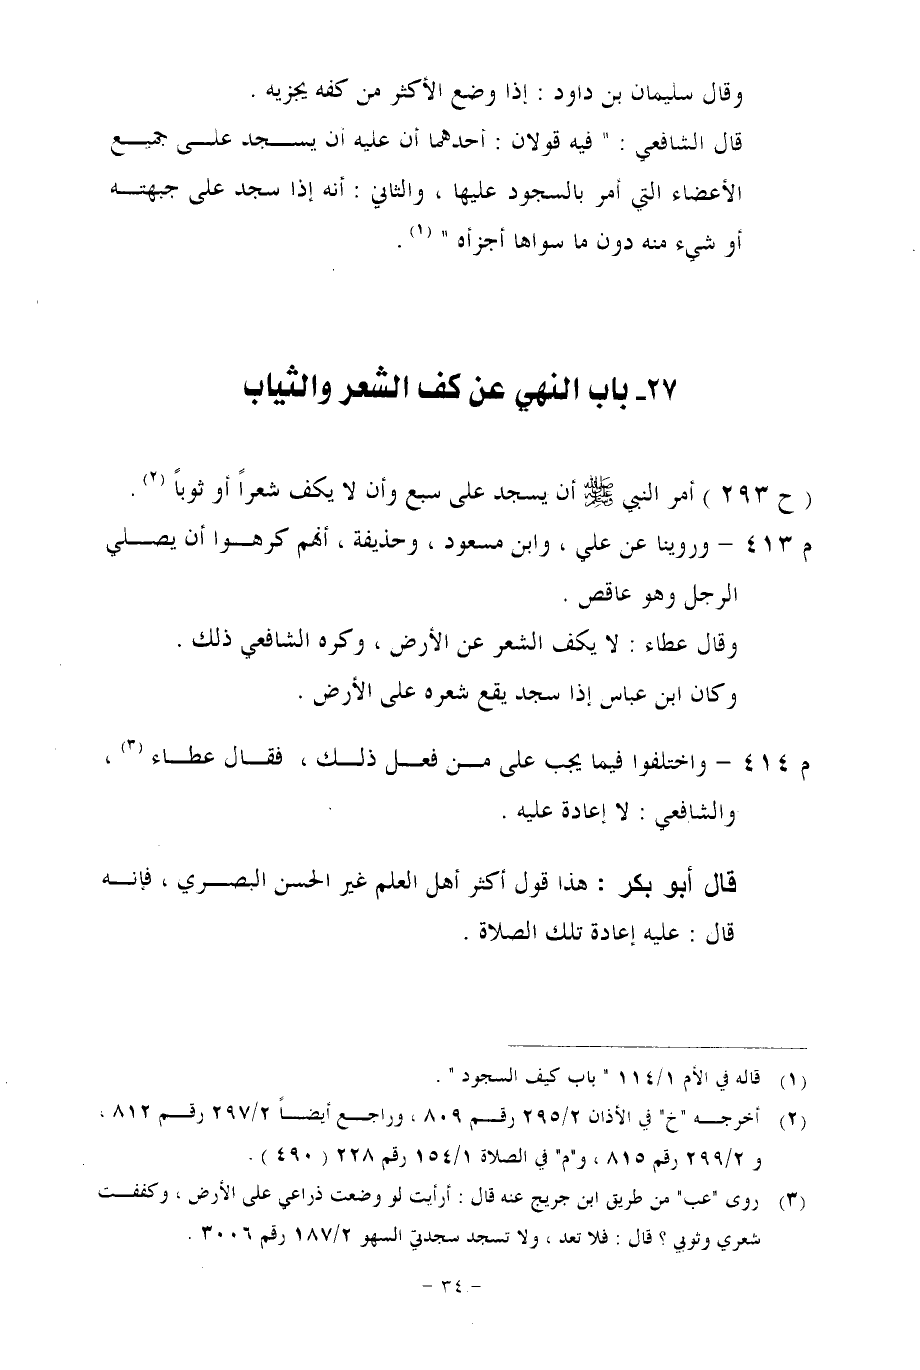 وقال سليمان بن داود : إذا وضع الأكثر من كفه يجزيه .
قال الشافعي : " فيه قولان : أحدهما أن عليه أن يسجد على جميع
الأعضاء التي أمر بالسجود عليها ، والثاني : أنه إذا سجد على جبهته
أو شيء منه دون ما سواها أجزأه " (١) .
٢٧ـ باب النهي عن كف الشعر والثياب
( ح ٢٩٣ ) أمر النبي ﷺ أن يسجد على سبع وأن لا يكف شعراً أو ثوباً (٢) .
م ٤١٣ – وروينا عن علي ، وابن مسعود ، وحذيفة ، أنهم كرهوا أن يصلي
الرجل وهو عاقص .
وقال عطاء : لا يكف الشعر عن الأرض ، وكره الشافعي ذلك .
وكان ابن عباس إذا سجد يقع شعره على الأرض .
م ٤١٤ – واختلفوا فيما يجب على من فعل ذلك ، فقال عطاء (٣) ،
والشافعي : لا إعادة عليه .
قال أبو بكر : هذا قول أكثر أهل العلم غير الحسن البصري ، فإنه
قال : عليه إعادة تلك الصلاة .
(١) قاله في الأم ١/ ١١٤ " باب كيف السجود " .
(٢) أخرجه "خ" في الأذان ٢/ ٢٩٥ رقم ٨٠٩ ، وراجع أيضاً ٢/ ٢٩٧ رقم ٨١٢ ،
و ٢/ ٢٩٩ رقم ٨١٥ ، و"م" في الصلاة ١/ ١٥٤ رقم ٢٢٨ ( ٤٩٠ ) .
(٣) روى "عب" من طريق ابن جريج عنه قال : أرأيت لو وضعت ذراعي على الأرض ، وكففت
شعري وثوبي ؟ قال : فلا تعد ، ولا تسجد سجدتي السهو ٢/ ١٨٧ رقم ٣٠٠٦ .
– ٣٤ –